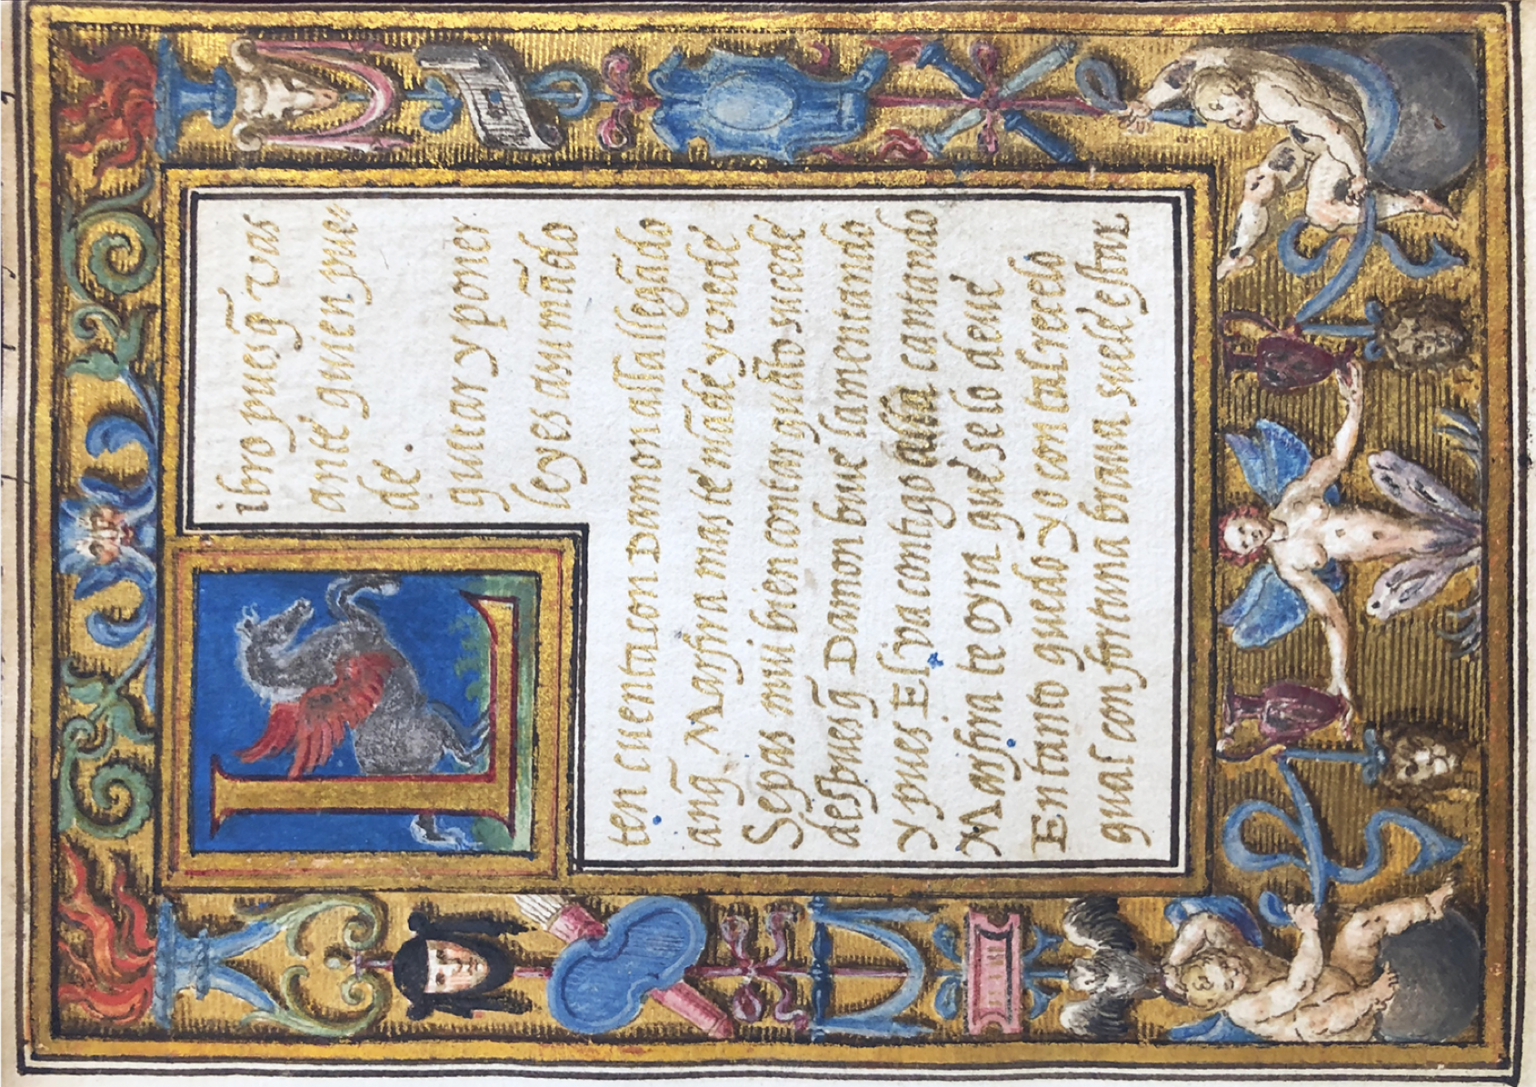 Libro pues q̃ vas
ante quien pue
de.
quitar y poner
leyes a su mãdo
ten cuenta con Damon alla llegãdo
aunq̃ Marfira mas te mãde y vede
Sepas mui bien contar quãto sucede
despues q̃ Damon biue lamentando
Y pues El va contigo alla cantando
Marfira te oyra que se lo deue
En tanto quedo yo con tal recelo
qual con fortuna braua suele